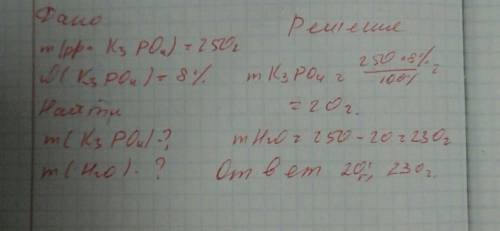 Дано
m(рр. K3PO4) = 250г
ω(K3PO4) = 8%
Найти
m(K3PO4)-?
m(H2O)-?
Решение
mK3PO4 = 250*8% / 100% =
= 20г.
mH2O = 250 - 20 = 230г
Ответ 20г, 230г.